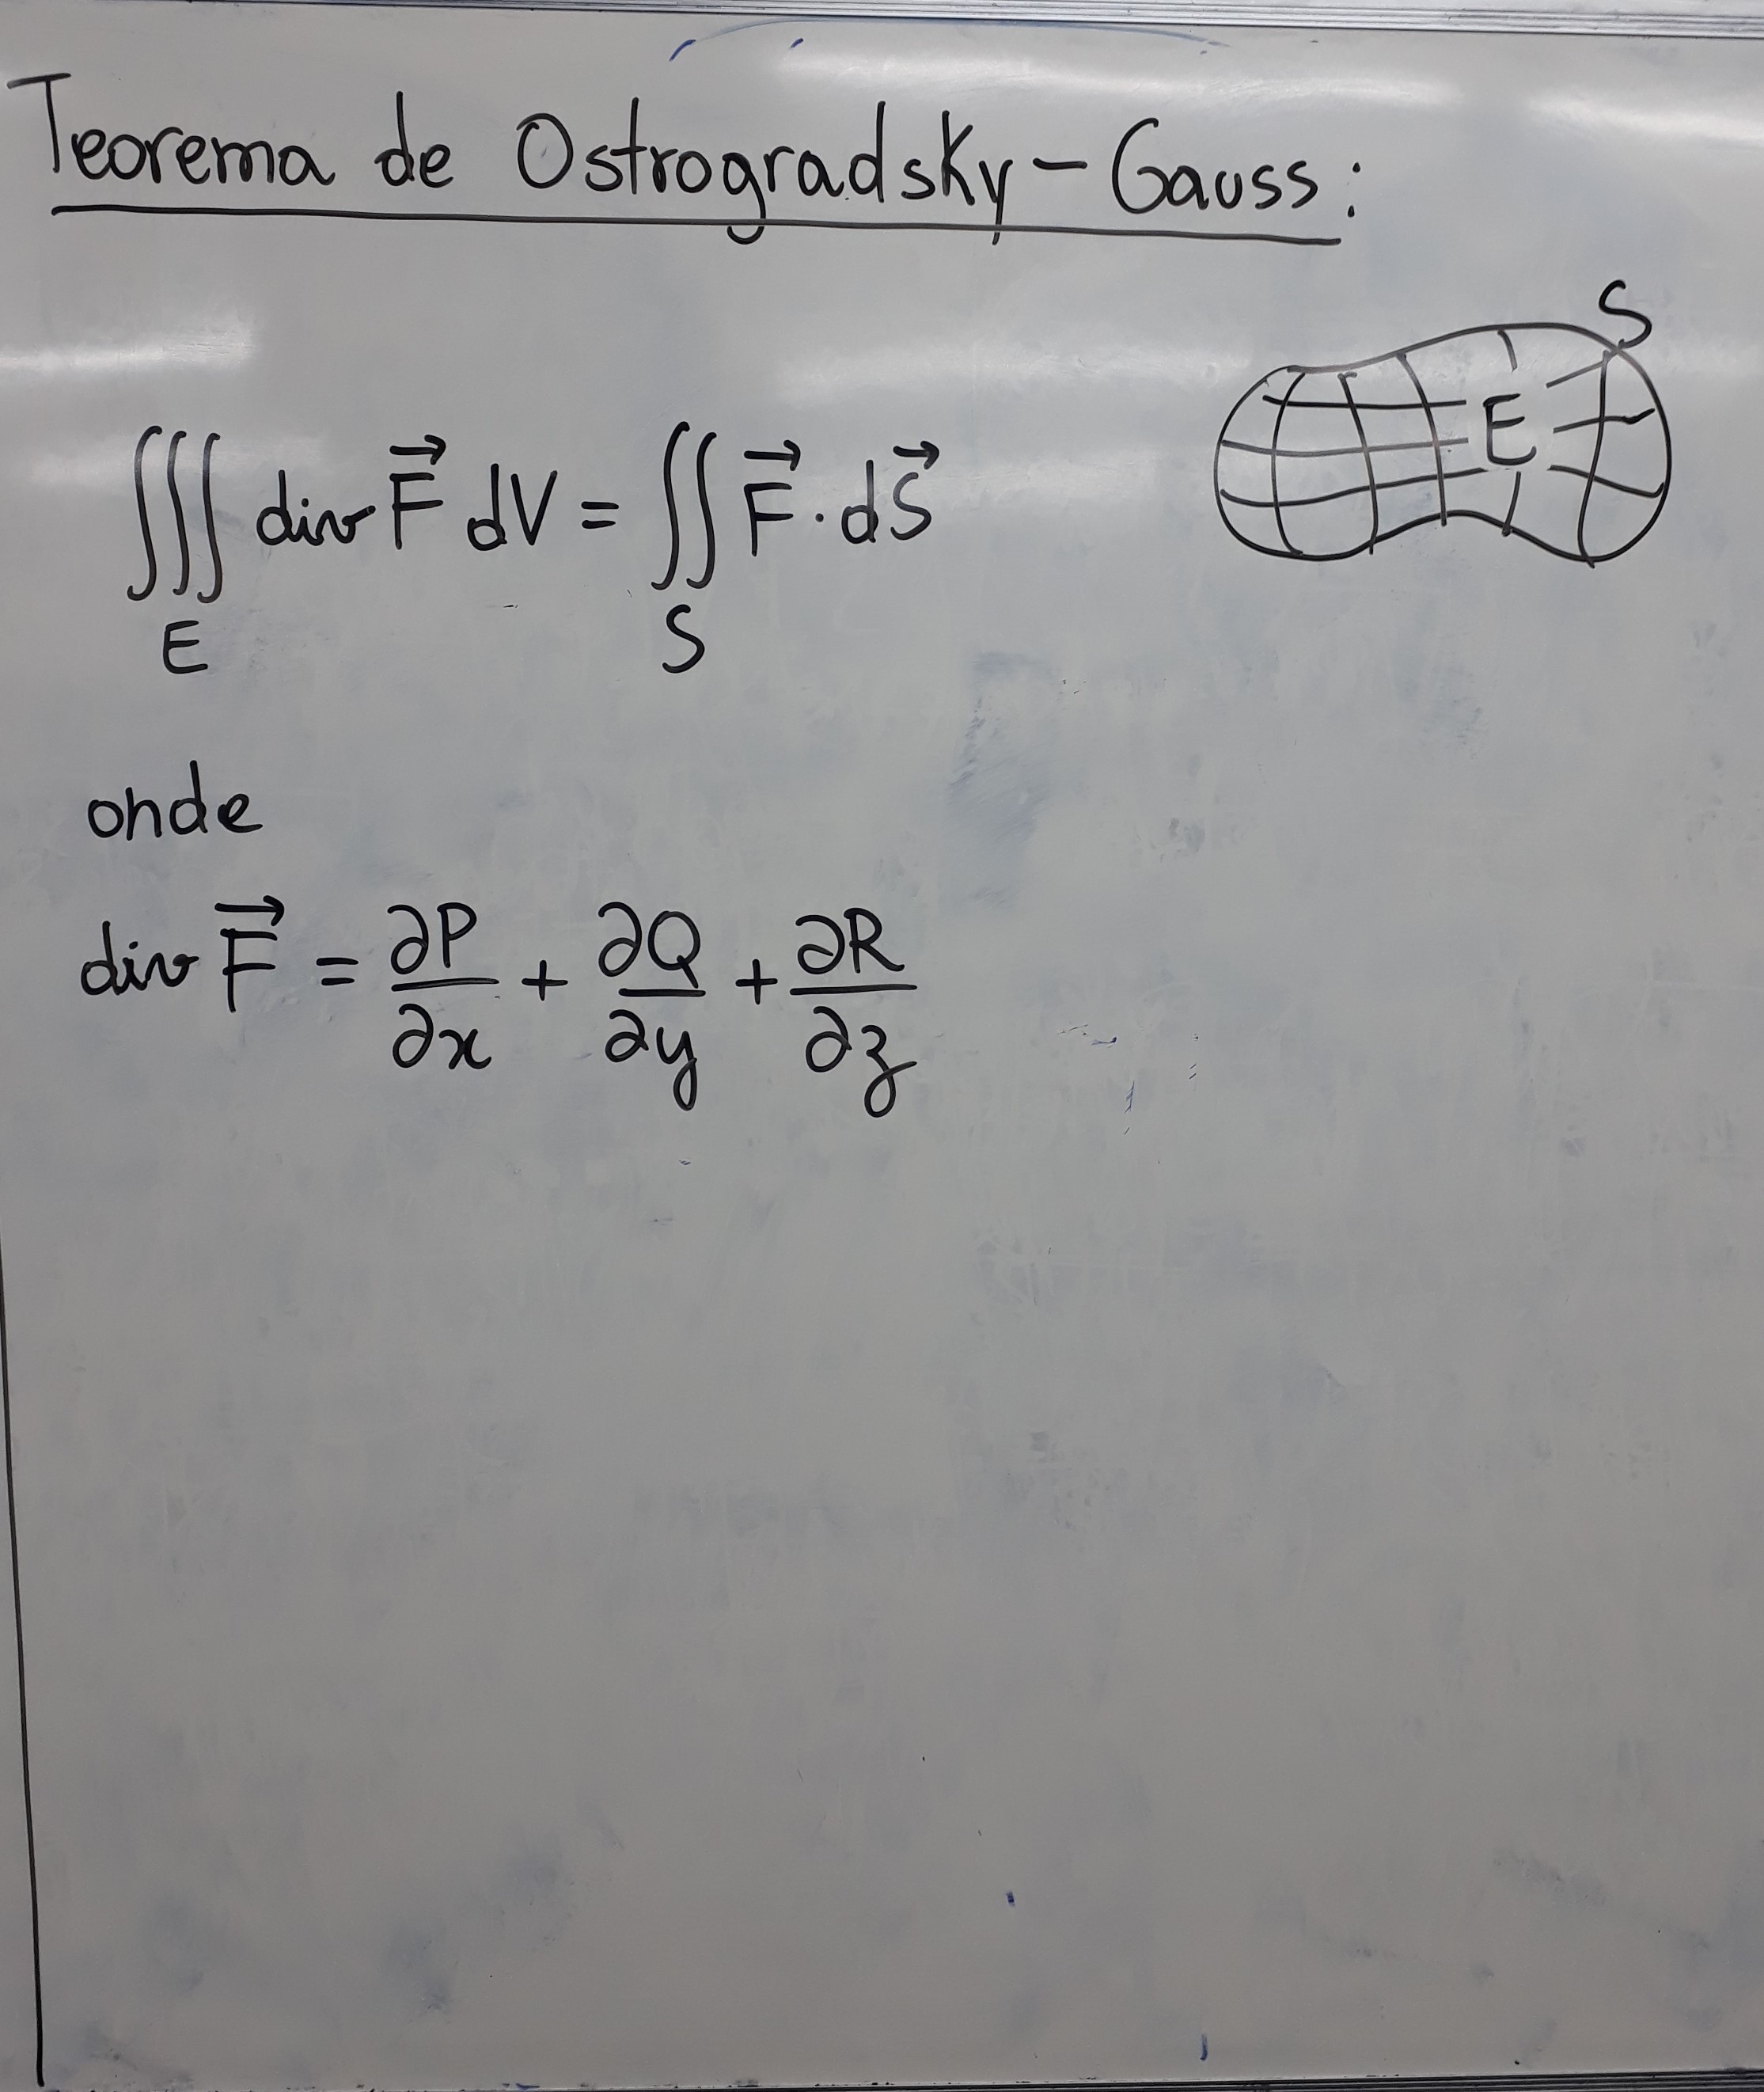 Teorema de Ostrogradsky-Gauss:
S
E
∭_E div F⃗ dV = ∬_S F⃗ · dS⃗
onde
div F⃗ = ∂P/∂x + ∂Q/∂y + ∂R/∂z